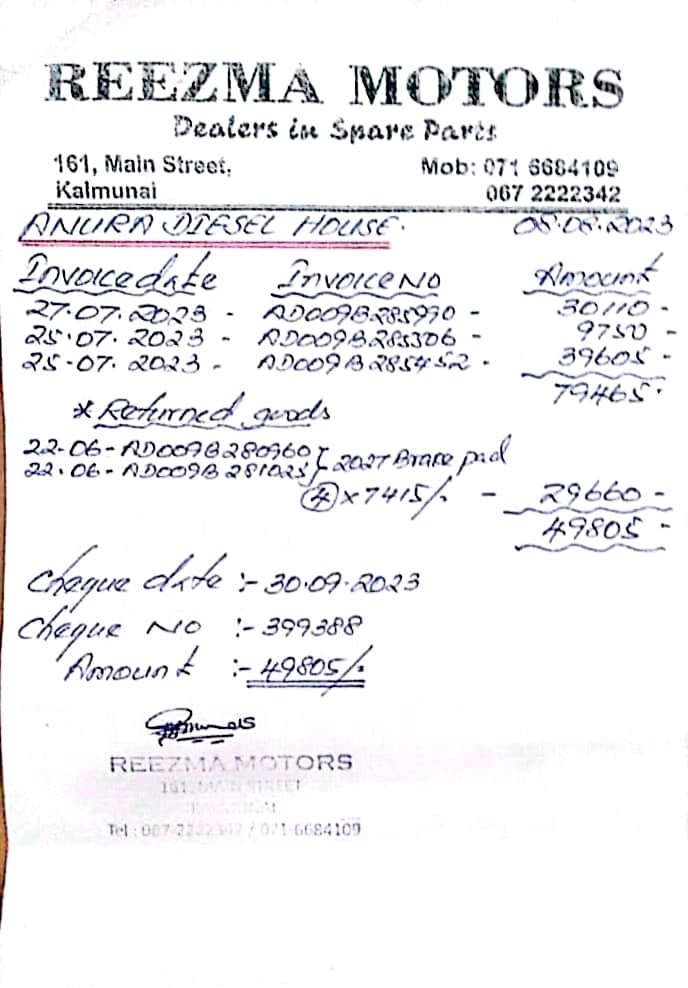 REEZMA MOTORS
Dealers in Spare Parts
161, Main Street, Mob: 071 6684109
Kalmunai 067 2222342
ANURA DIESEL HOUSE. 05.08.2023
Invoice date Invoice No Amount
27.07.2023 - AD009B285990 - 30110-
25.07.2023 - AD009B285306 - 9750 -
25-07.2023 - AD009B285452 - 39605 -
79465.
* Returned goods
22-06-AD009B280960
22.06-AD009B281025 } 202T Brake pad
④ x 7415/- - 29660 -
49805 -
Cheque date :- 30.09.2023
Cheque No :- 399388
Amount :- 49805/.
REEZMA MOTORS
161, MAIN STREET
Tel : 067-2222342 / 071-6684109